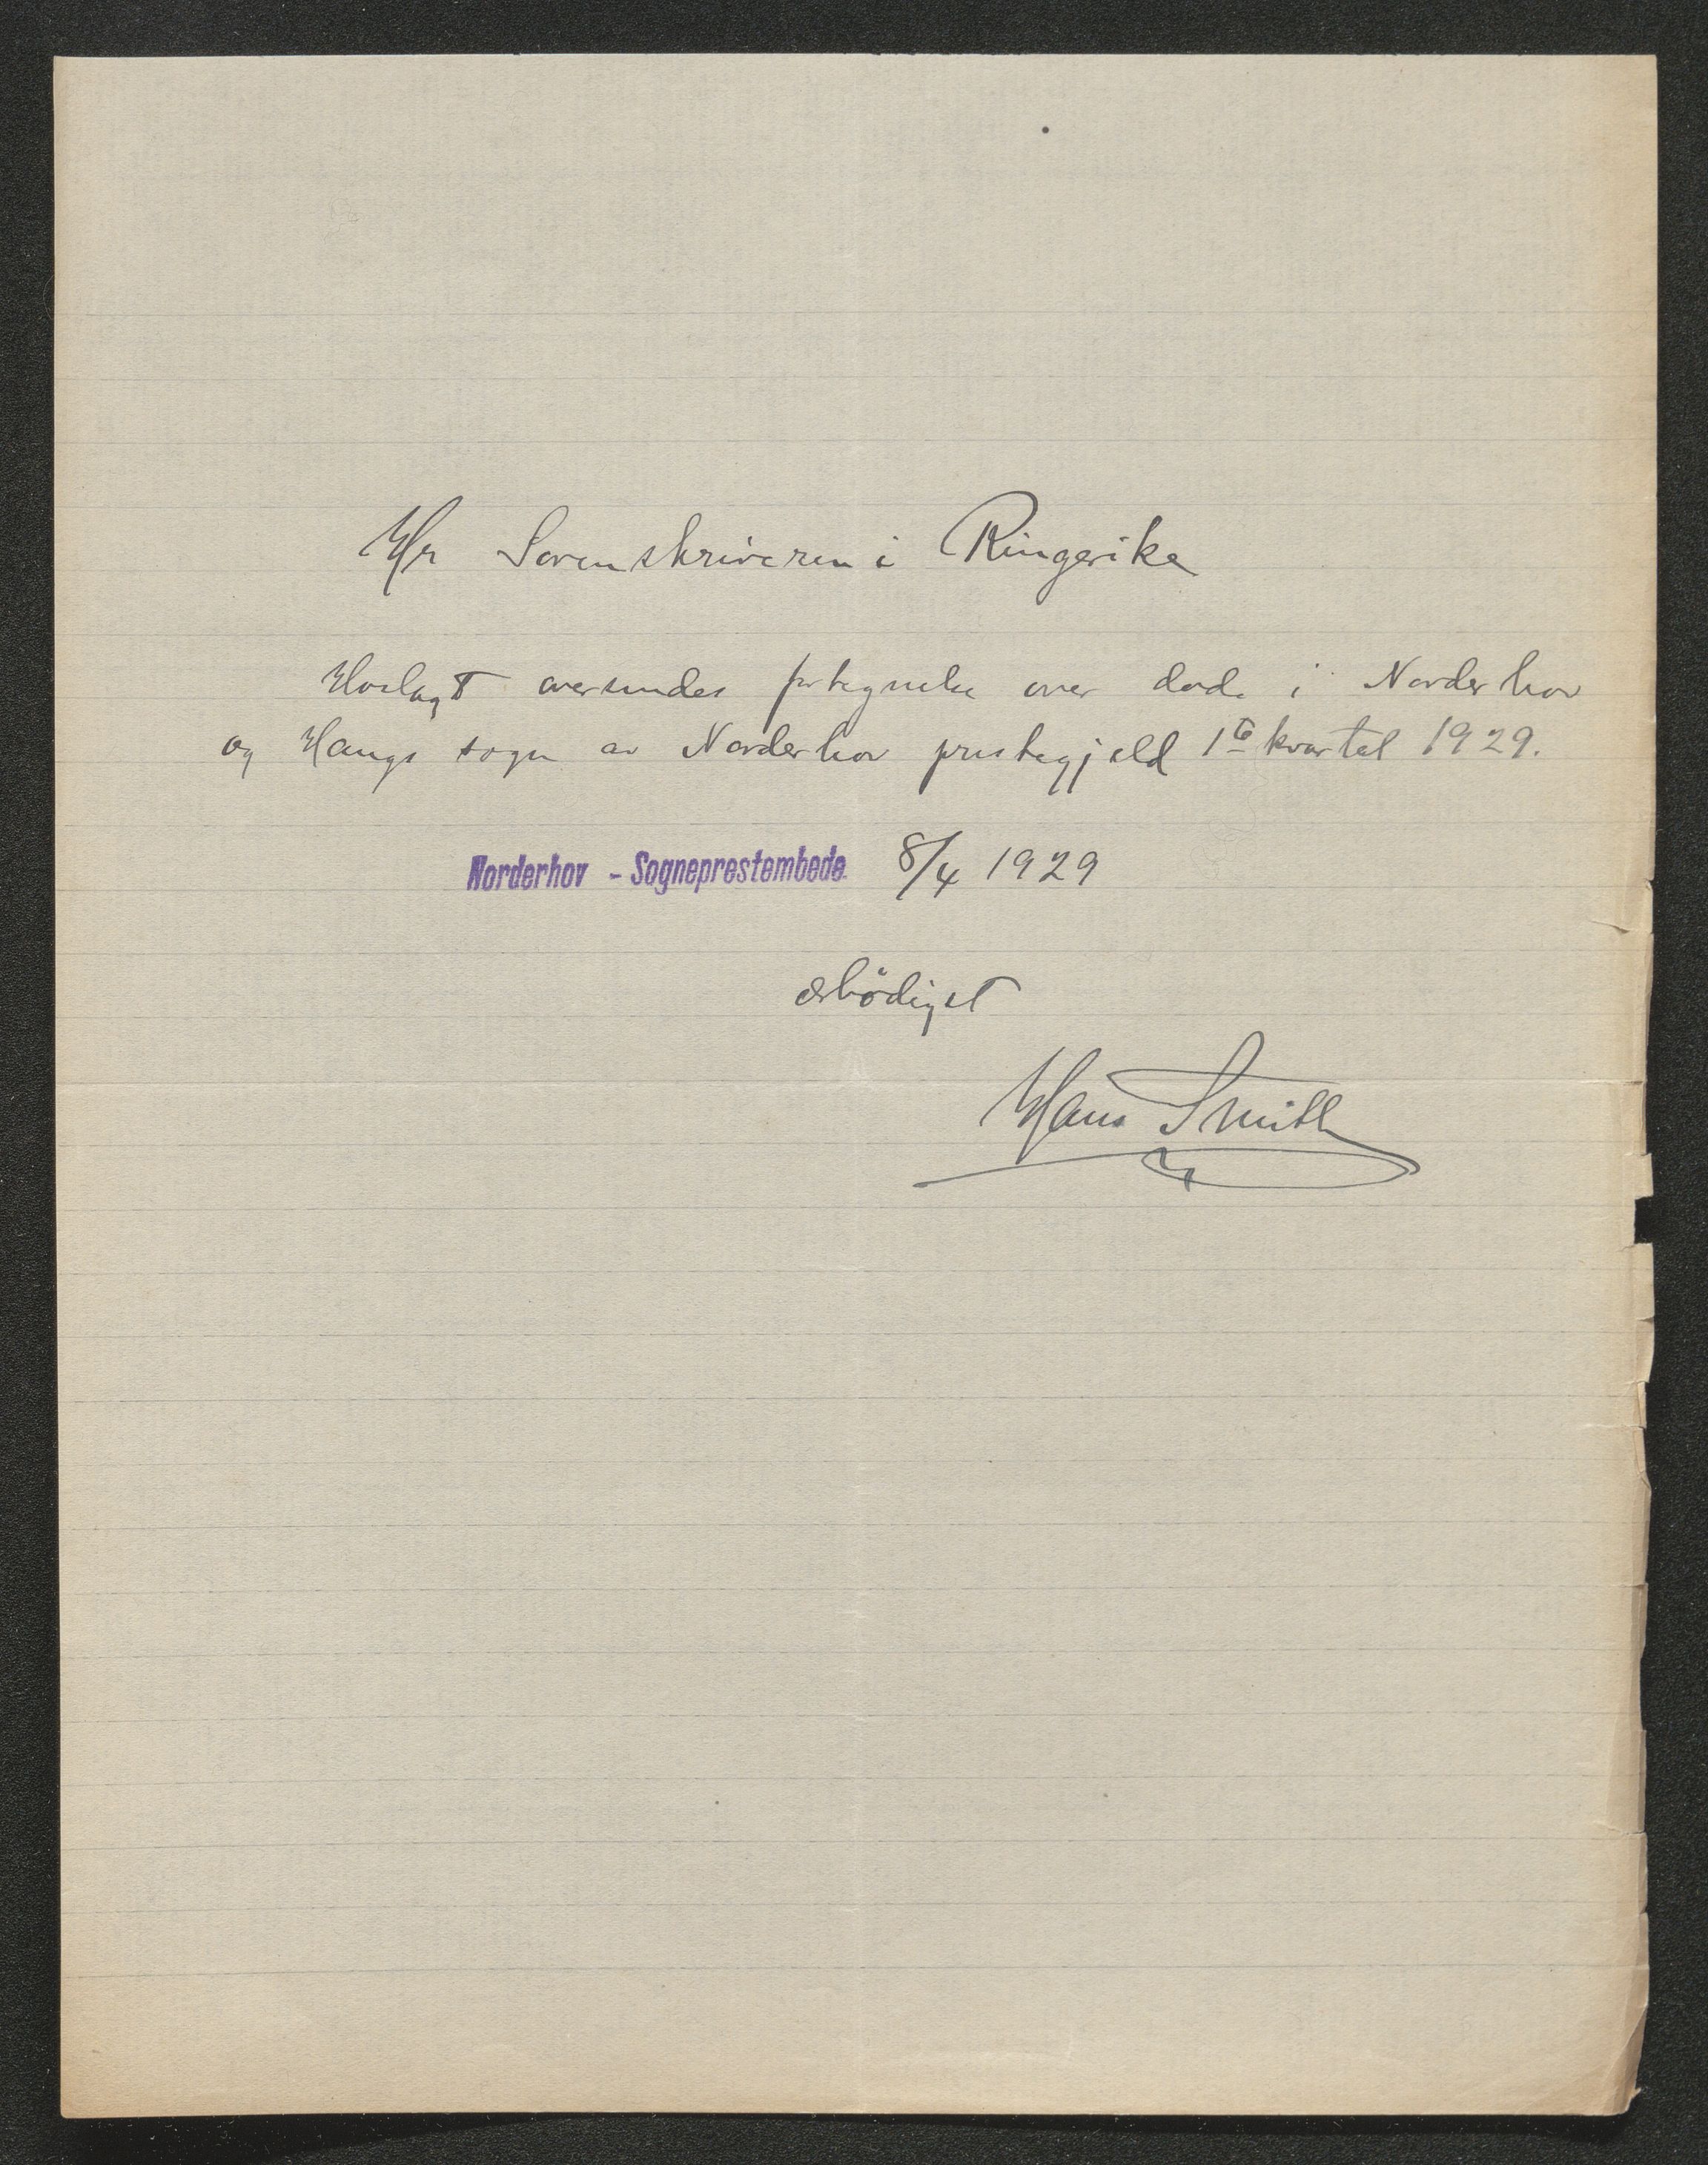 Hr Sorenskriveren i Ringerike
Hoslagt oversendes fortegnelse over døde i Norderhov
og Haugs sogn av Norderhov prestegjeld 1te kvartal 1929.
Norderhov - Sogneprestembede 8/4 1929
ærbödigst
Hans Smith